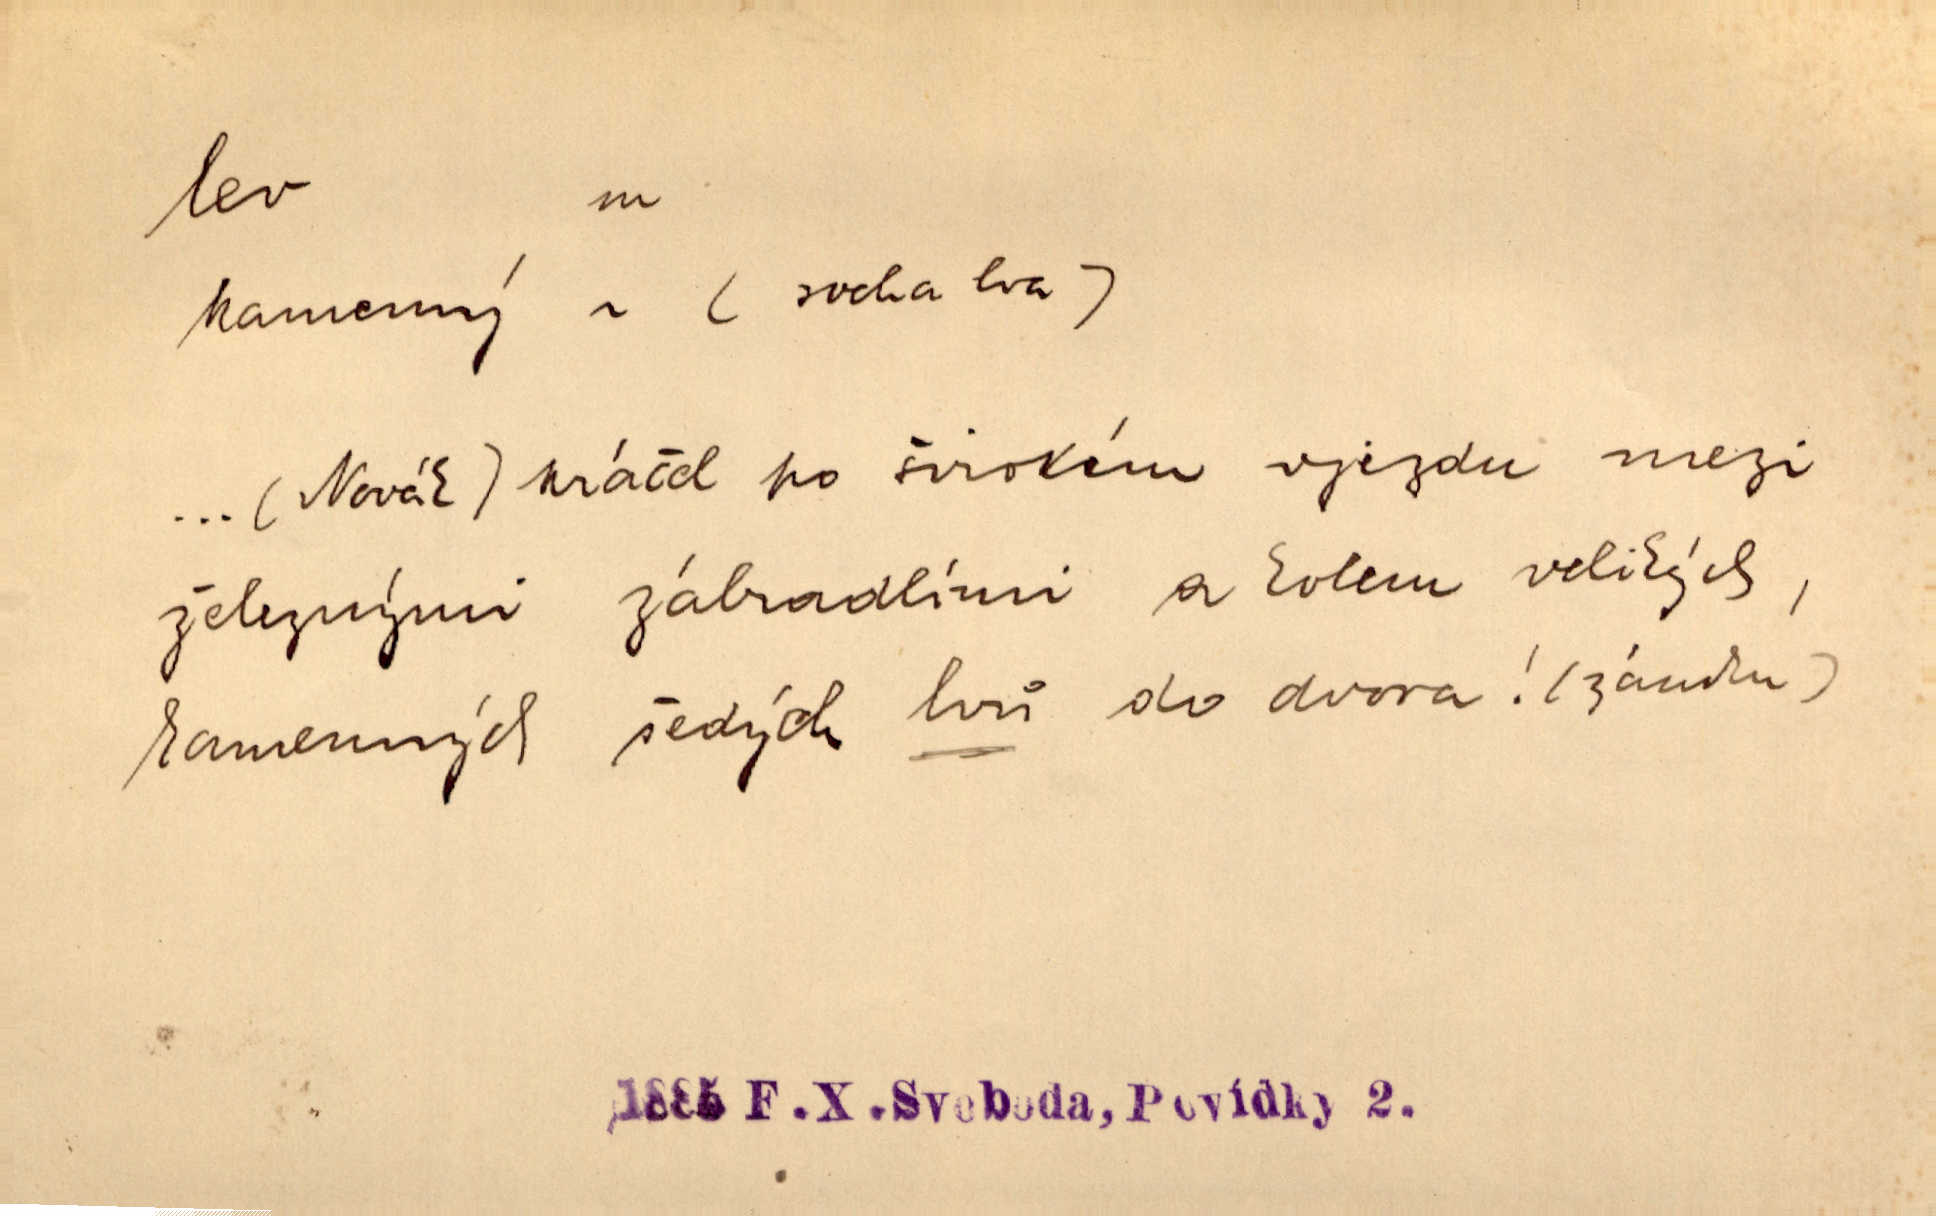 lev m
kamenný ~ (socha lva)
... (Novák) kráčel po širokém vjezdu mezi
železnými zábradlími a kolem velikých,
kamenných šedých lvů do dvora! (zámku)
1885 F.X.Svoboda, Povídky 2.